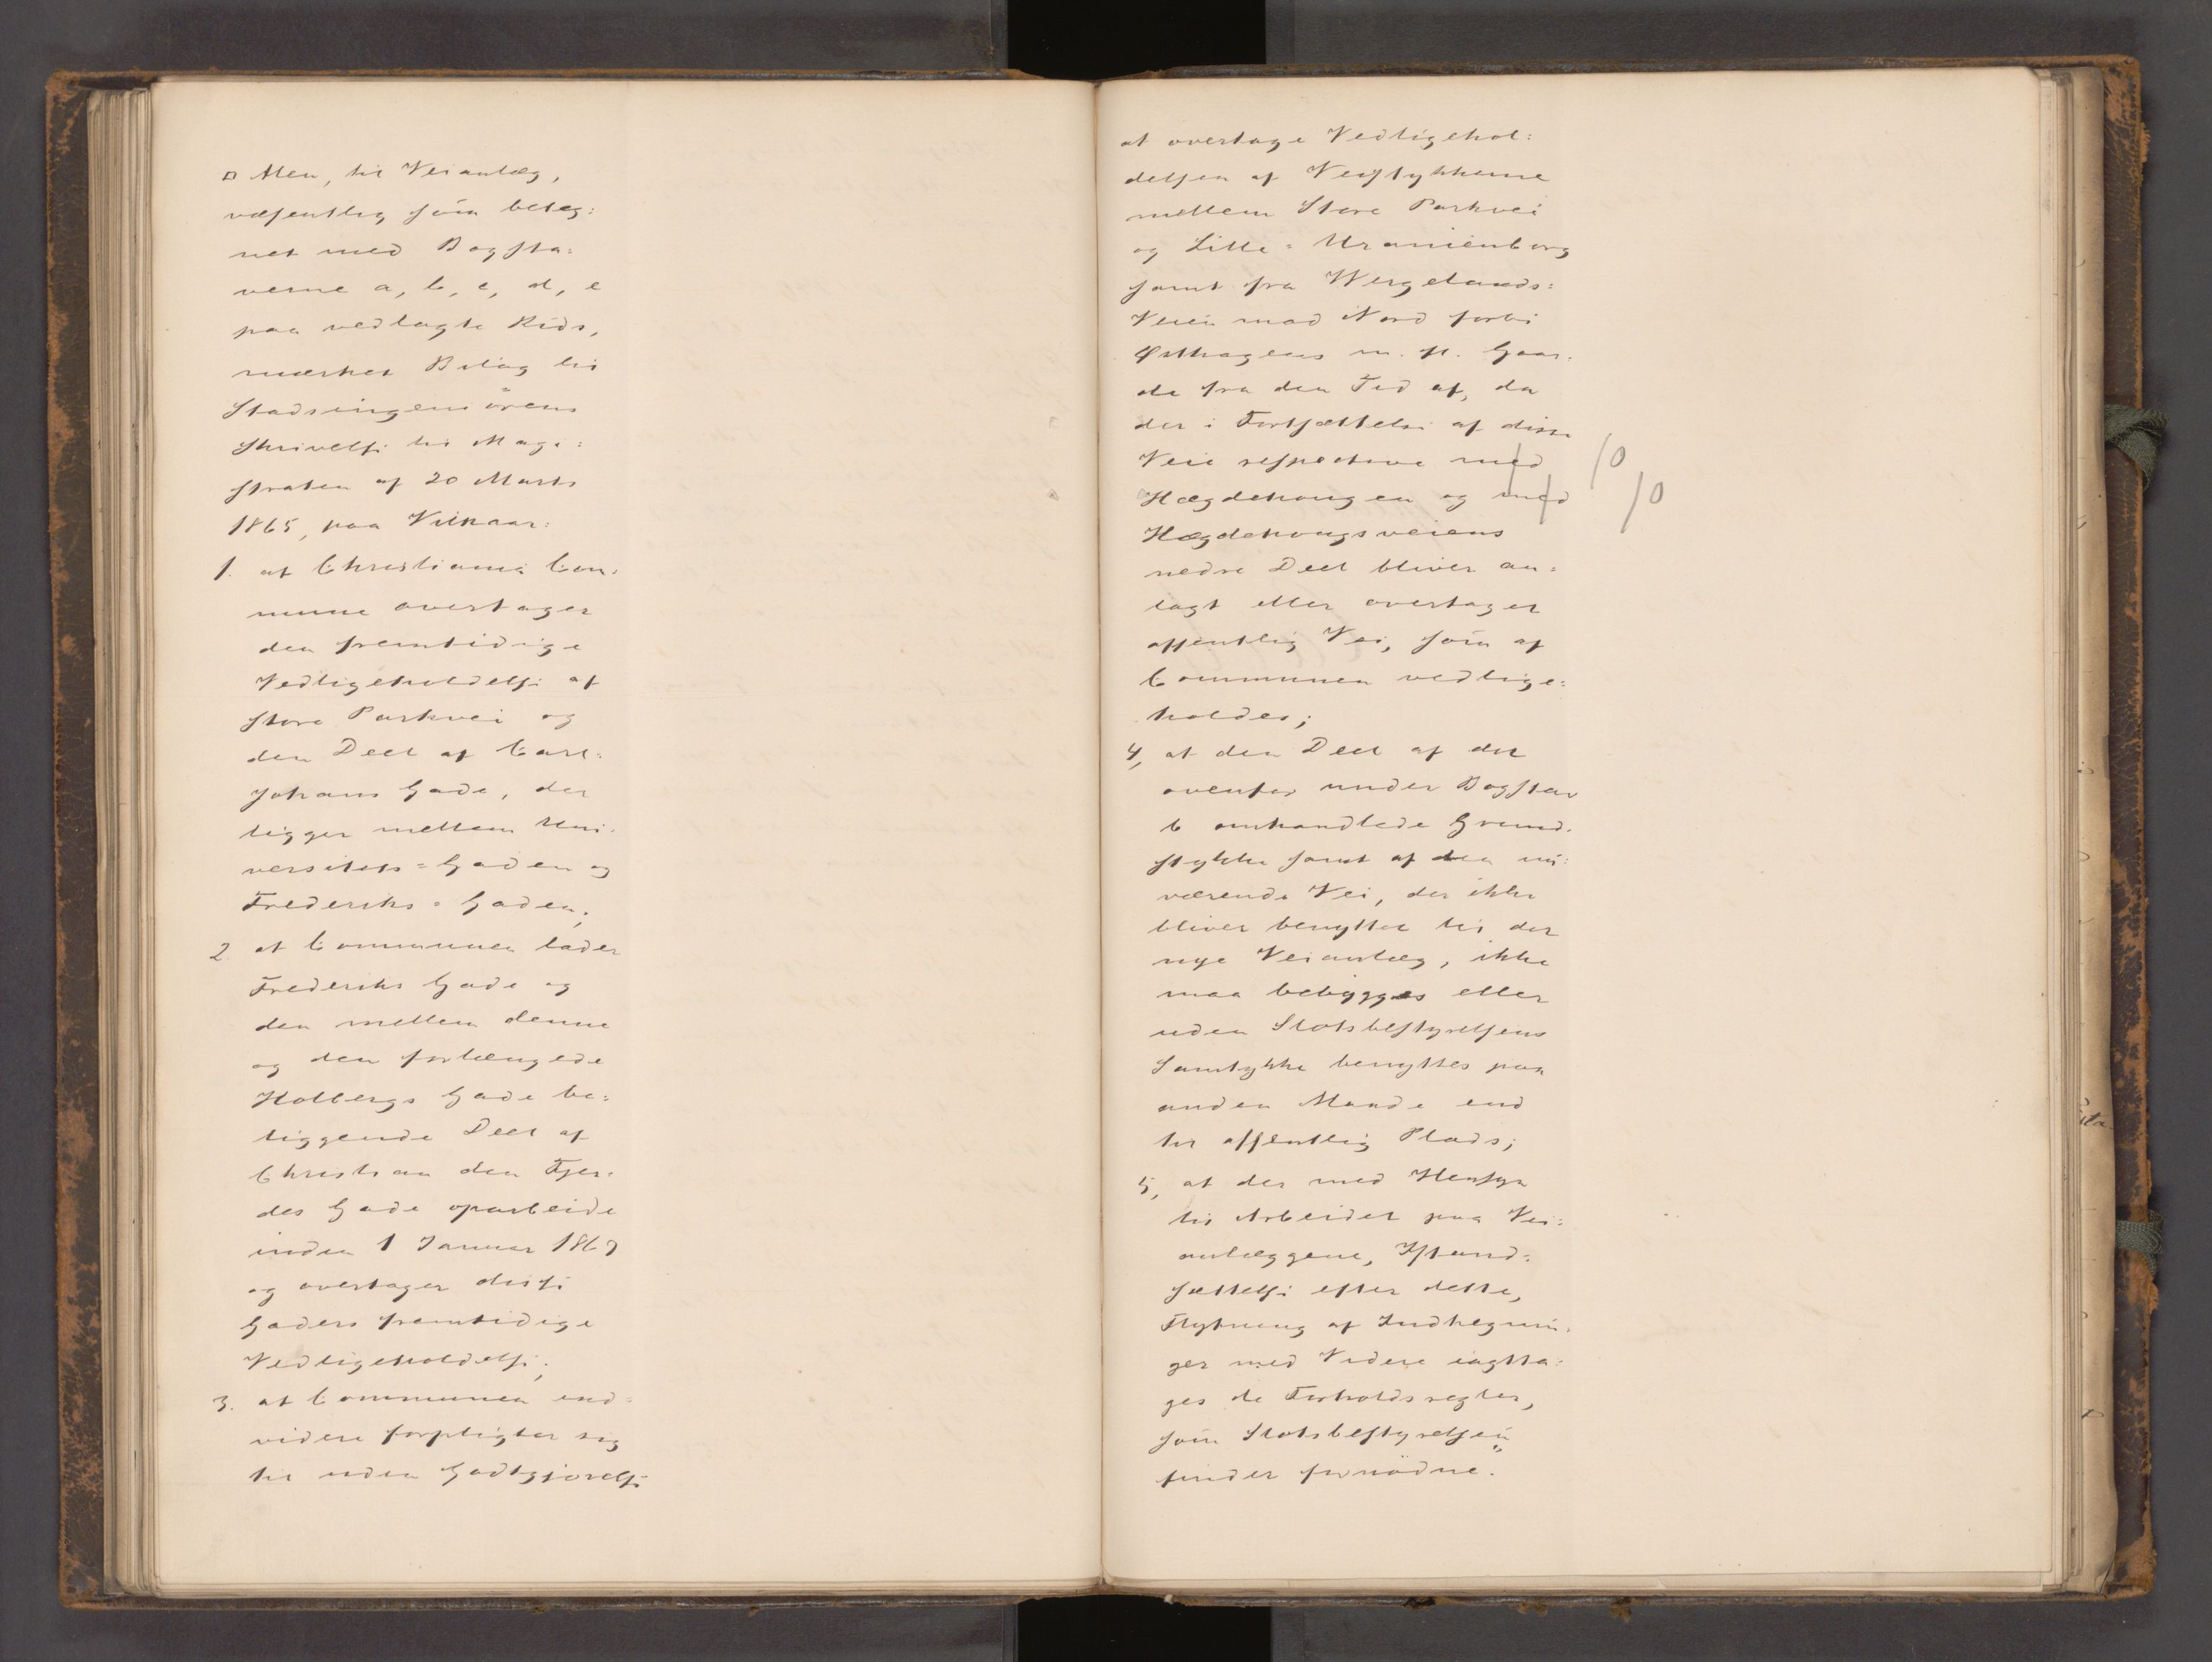 □ Alen, til Veianlæg,
væsentlig som beteg:
net med Bogsta:
verne a, b, c, d, e
paa vedlagte Rids,
mærket Bilag til
Stadsingeniörens
Skrivelse til Magi:
straten af 20 Marts
1865, paa Vilkaar:
1. at Christiania Com:
mune overtager
den fremtidige
Vedligeholdelse af
store Parkvei og
den Deel af Carl:
Johans Gade, der
ligger mellem Uni:
versitets=Gaden og
Frederiks=Gaden;
2. at Communen lader
Frederiks Gade og
den mellem denne
og den forlængede
Holbergs Gade be:
liggende Deel af
Christian den Fjer:
des Gade oparbeide
inden 1 Januar 1867
og overtager disse
Gaders fremtidige
Vedligeholdelse;
3. at Communen end:
videre forpligter sig
til uden Godtgjörelse
at overtage Vedligehol:
delsen af Veistykkerne
mellem Store Parkvei
og Lille=Uranienborg
samt fra Wergelands:
Veien mod Nord forbi
Østhagens m. fl. Gaar:
de fra den Tid af, da
der i Fortsættelse af disse
Veie respective med
Hægdehougen og med
Hægdehougsveiens
nedre Deel bliver an:
lagt eller overtaget
offentlig Vei, som af
Communen vedlige:
holdes;
4, at den Deel af det
ovenfor under Bogstav
b omhandlede Grund:
stykke samt af den nu:
værende Vei, der ikke
bliver benyttet til det
nye Veianlæg, ikke
maa bebygges eller
uden Slotsbestyrelsens
Samtykke benyttes paa
anden Maade end
til offentlig Plads;
5, at der med Hensyn
til Arbeidet paa Vei:
anlæggene, Istand:
sættelse efter dette,
Flytning af Indhegnin:
ger med Videre iagtta:
ges de Forholdsregler,
som Slotsbestyrelsen
finder fornödne.